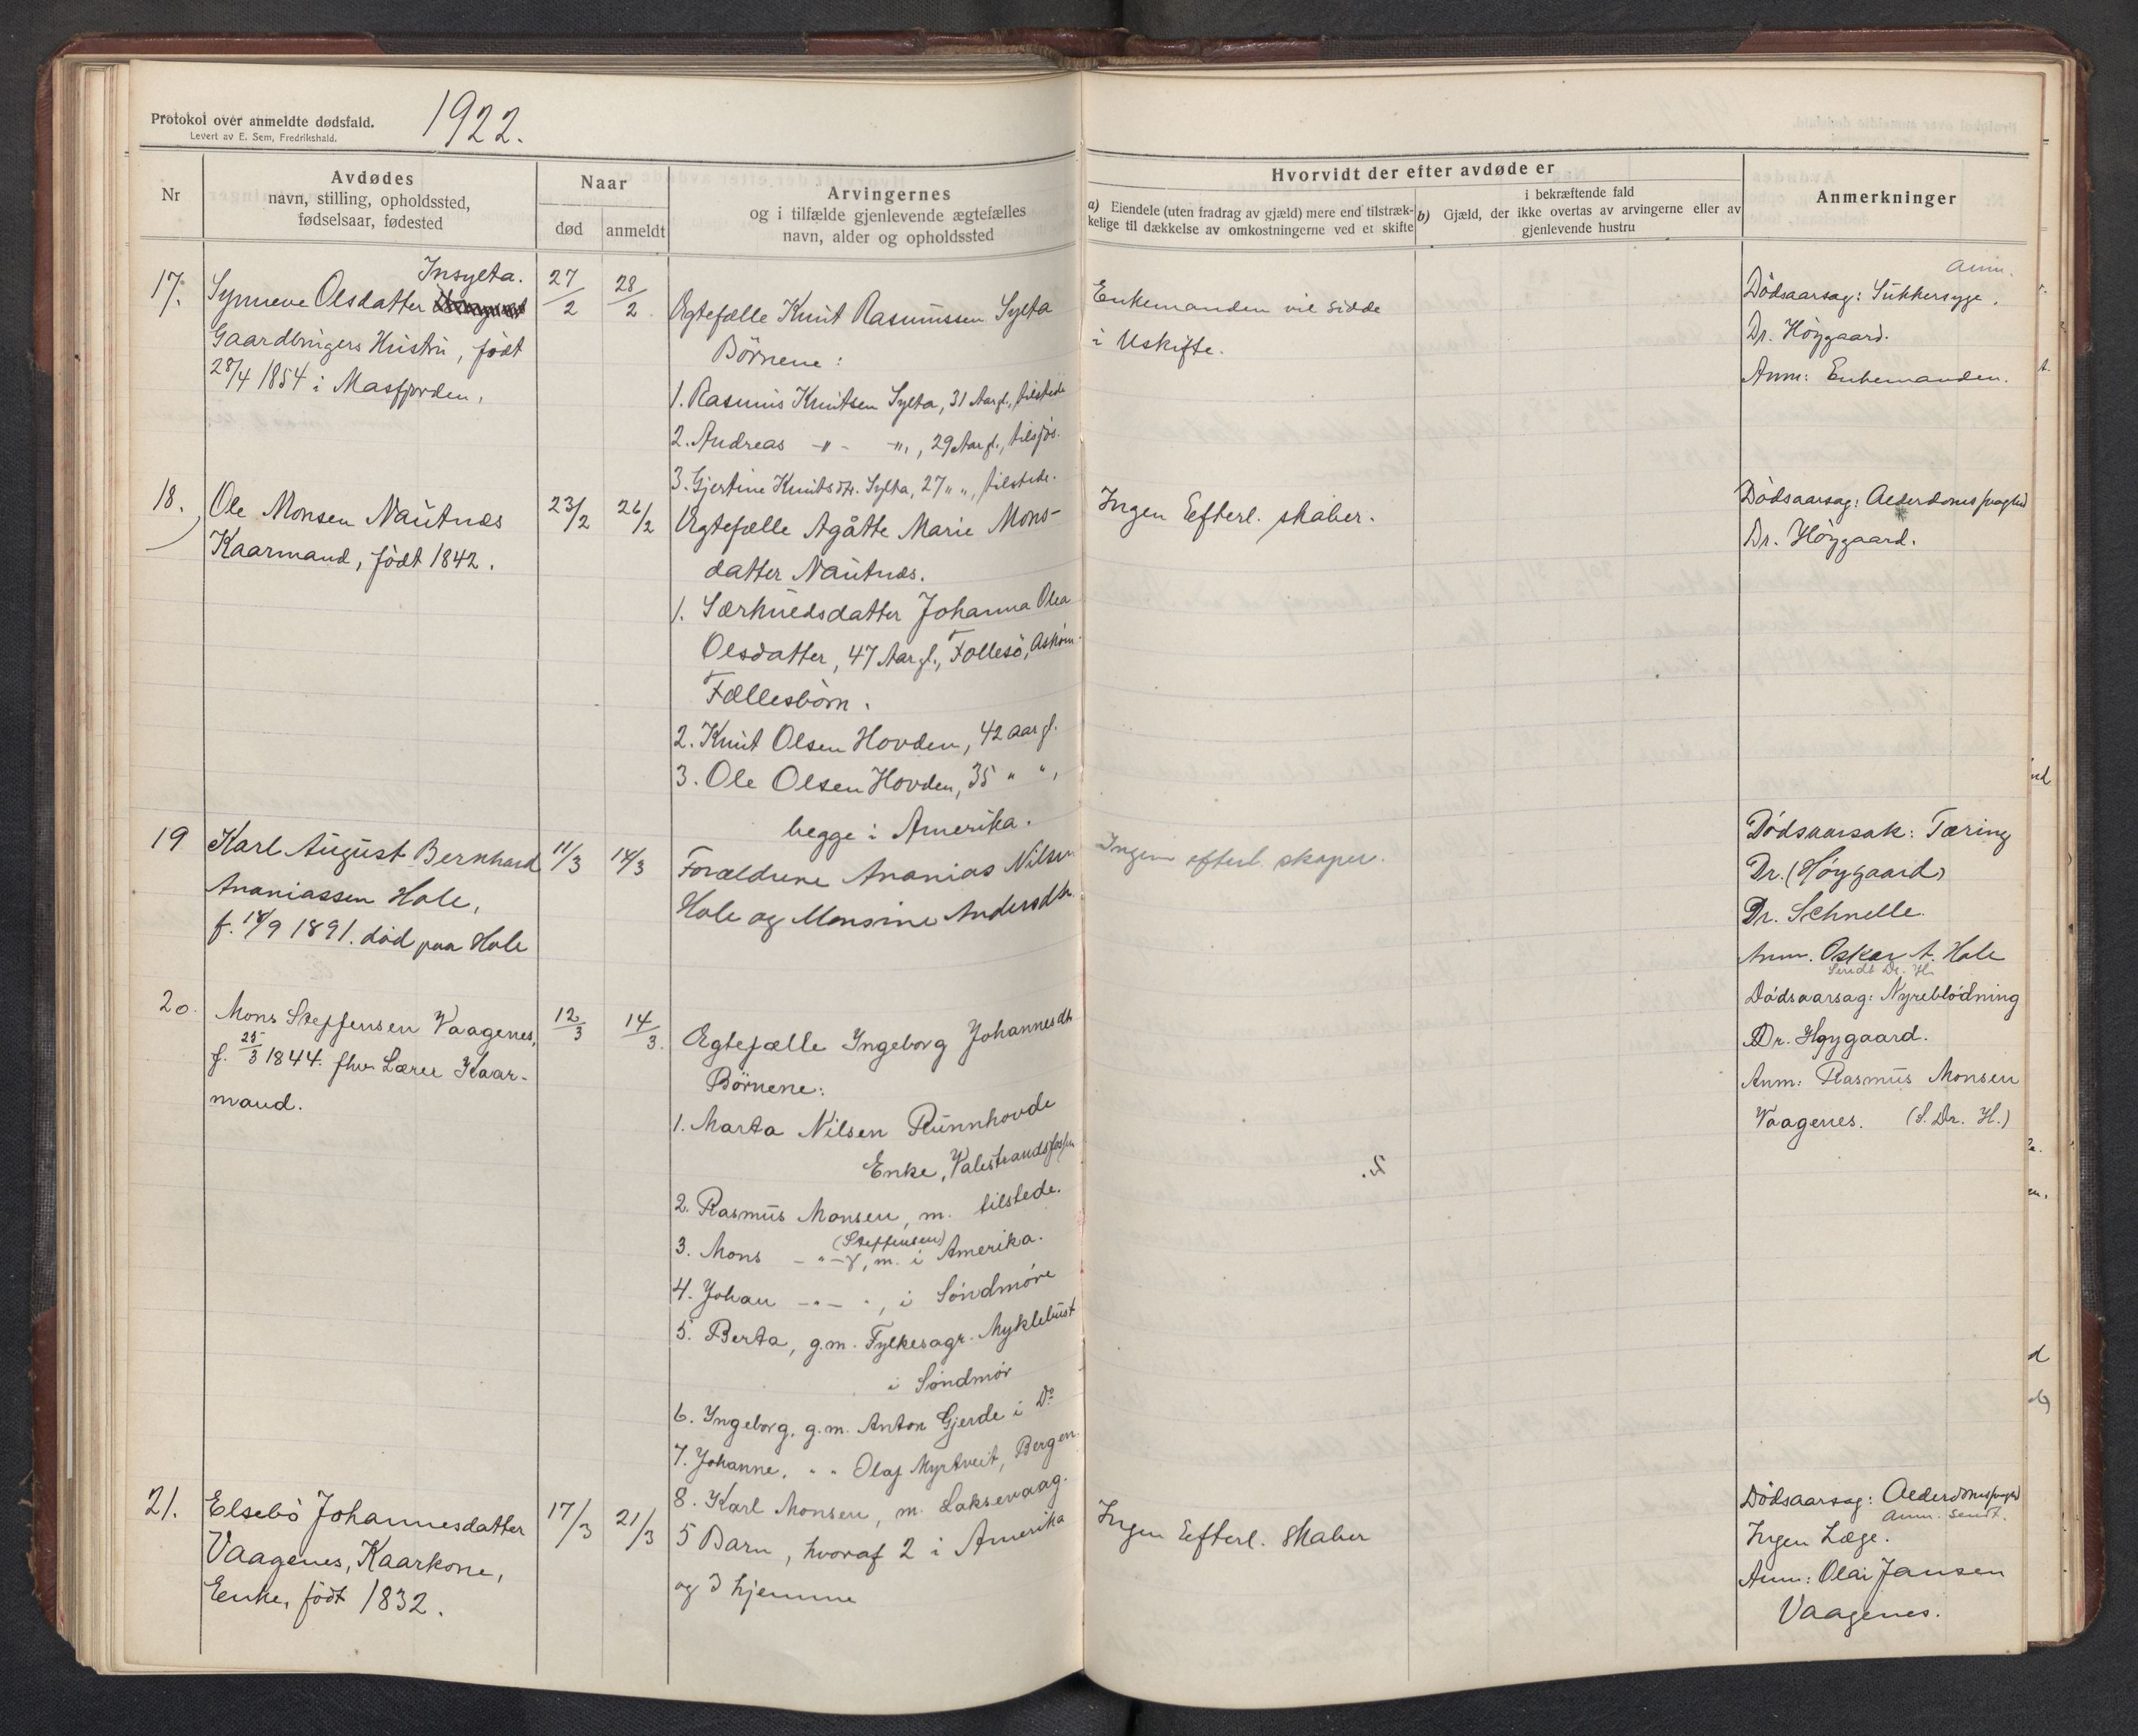 Protokol over anmeldte dødsfald.
Levert av E. Sem, Fredrikshald.
1922.
Nr
Avdødes
navn, stilling, opholdssted,
fødselsaar, fødested
Naar
død
anmeldt
Arvingernes
og i tilfælde gjenlevende ægtefælles
navn, alder og opholdssted
Hvorvidt der efter avdøde er
a) Eiendele (uten fradrag av gjæld) mere end tilstræk-
kelige til dækkelse av omkostningerne ved et skifte
i bekræftende fald
b) Gjæld, der ikke overtas av arvingerne eller av
gjenlevende hustru
Anmerkninger
17.
Insylta.
Synneve Olsdatter
Gaardbrugers Hustru, født
28/4 1854 i Masfjorden,
27/2
28/2.
Ægtefælle Knut Rasmussen Sylta
Börnene:
1. Rasmus Knutsen Sylta, 31 Aar gl., tilstede
2. Andreas -"- -"-, 29 Aar gl., tilsjøs.
3. Gjertine Knutsdtr. Sylta, 27 " ", tilstede.
Enkemanden vil sidde
i Uskifte.
Anm.
Dödsaarsag: Sukkersyge.
Dr. Höygaard.
Anm: Enkemanden.
18.
Ole Monsen Nautnes
Kaarmand, født 1842.
23/2
26/2
Ægtefælle Agåtte Marie Mons-
datter Nautnæs.
1. Særkuldsdatter Johanna Olea
Olsdatter, 47 Aar gl., Follesö, Askøen.
Fællesbörn.
2. Knut Olsen Hovden, 42 aar gl.
3. Ole Olsen Hovden, 35 " ",
begge i Amerika.
Ingen Efterl. skaber.
Dödsaarsag: Alderdomssvaghed
Dr. Höygaard.
19
Karl August Bernhard
Ananiassen Hole,
f. 18/9 1891. død paa Hole
11/3
14/3
Forældrene Ananias Nilsen
Hole og Monsine Andersdtr.
Ingen efterl. skaper.
Dödsaarsak: Tæring
Dr. (Høygaard)
Dr. Schnelle.
Anm. Oskar A. Hole
Sendt Dr. H.
20.
Mons Steffensen Vaagenes,
f. 25/3 1844. fhv. Lærer Kaar-
mand.
12/3
14/3.
Ægtefælle Ingeborg Johannesdtr
Börnene:
1. Marta Nilsen Runnhovde
Enke, Valestrandsfossen
2. Rasmus Monsen, m. tilstede.
3. Mons -"- (Steffensen), m. i Amerika.
4. Johan -"- ", i Söndmöre
5. Berta, g.m. Fylkesagr. Myklebust
i Söndmör
6. Ingeborg, g.m. Anton Gjerde i Do
7. Johanne, " " Olaf Myrtveit, Bergen.
8. Karl Monsen, m. Laksevaag.
Dödsaarsag: Nyreblödning
Dr. Høygaard.
Anm: Rasmus Monsen
Vaagenes. (S. Dr. H.)
21.
Elsebö Johannesdatter
Vaagenes, Kaarkone,
Enke, født 1832.
17/3
21/3
5 Barn, hvoraf 2 i Amerika
og 3 hjemme
Ingen Efterl. skaber
Dödsaarsag: Alderdomssvaghed
Anm. sendt.
Ingen Læge.
Anm: Olai Jansen
Vaagenes.